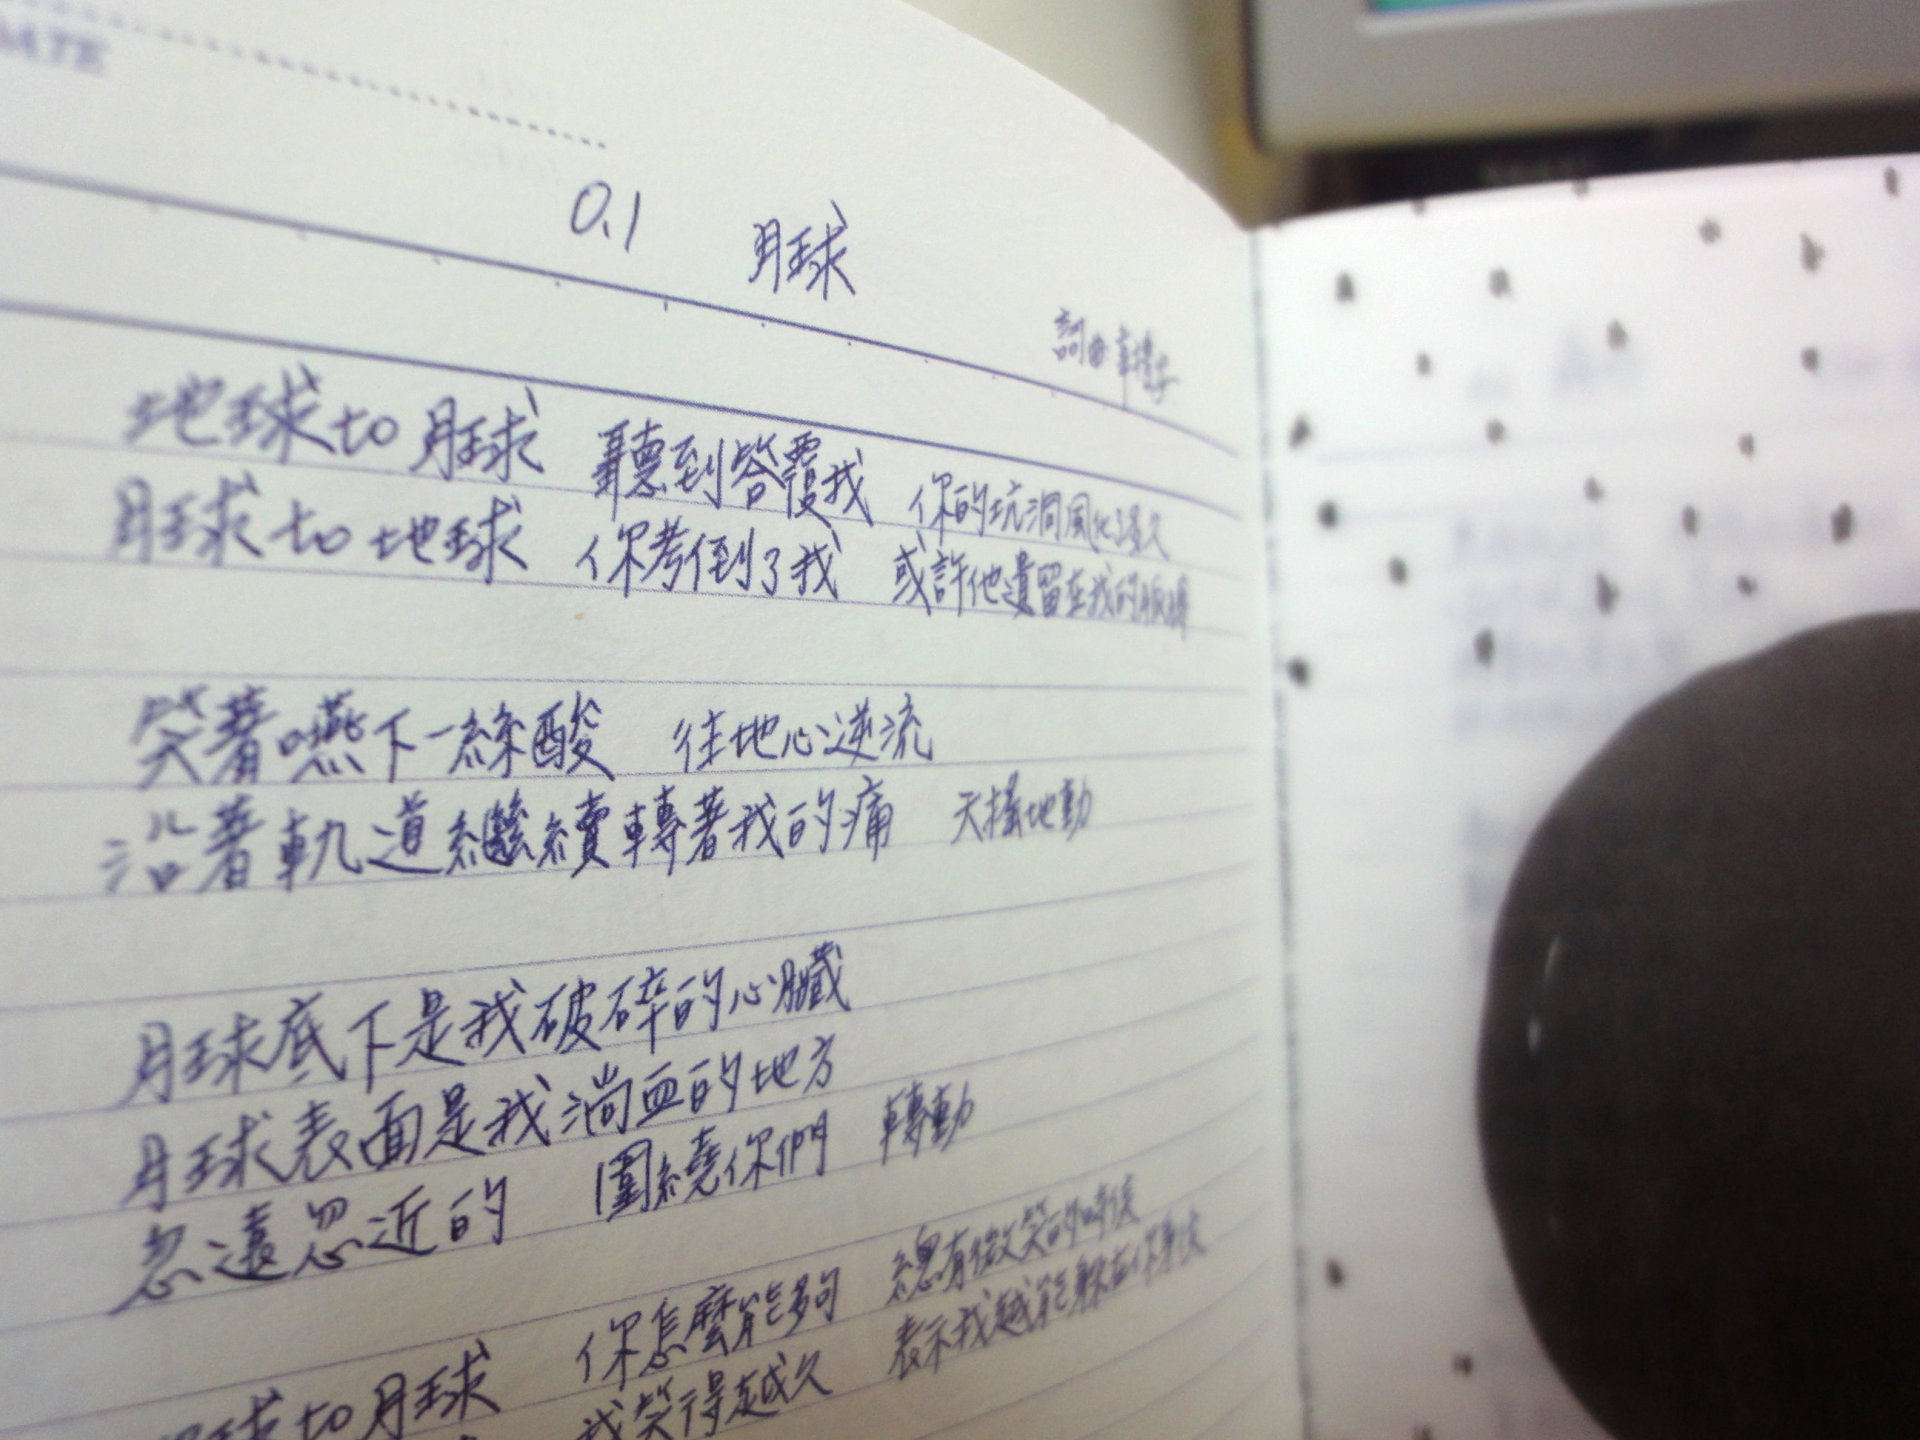 DATE
0.1 月球
詞曲 韋禮安
地球 to 月球 聽到答覆我 你的坑洞風化了多久
月球 to 地球 你考倒了我 或許他遺留在我的胸膛
笑著嚥下一絲酸 往地心逆流
沿著軌道繼續轉著我的痛 天搖地動
月球底下是我破碎的心臟
月球表面是我淌血的地方
忽遠忽近的 圍繞你們 轉動
球 to 月球 你怎麼能夠 總有微笑的時候
我笑得越久 表示我越能躲在你身後